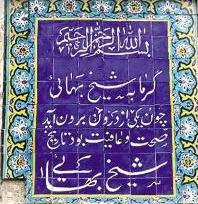 بسم الله الرحمن الرحیم
گرمابه شیخ بهائی
چون یکی از در درون برون آید
صحت و عافیت بود تاریخ
شیخ بهائی